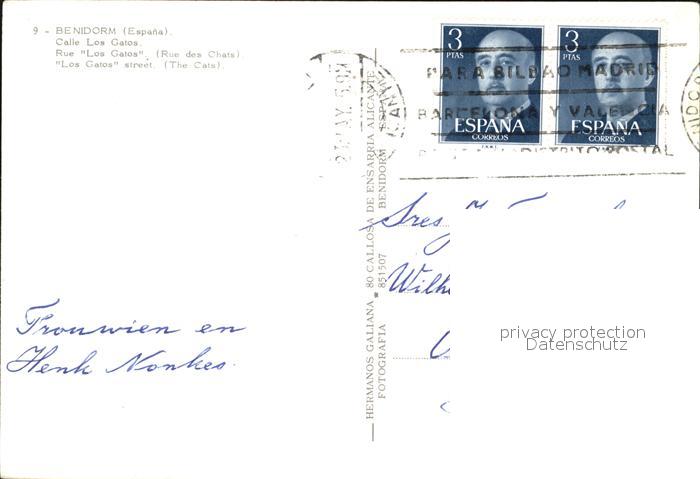 9 - BENIDORM (España).
Calle Los Gatos.
Rue "Los Gatos". (Rue des Chats).
"Los Gatos" street. (The Cats).
3
PTAS
ESPAÑA
CORREOS
3
PTAS
ESPAÑA
CORREOS
PARA BILBAO MADRID
BARCELONA Y VALENCIA
DISTRITO POSTAL
HERMANOS GALIANA 80 CALLOSA DE ENSARRIA ALICANTE
FOTOGRAFIA 851507 BENIDORM ESPAÑA
Sres
Trouwien en
Henk Nonkes.
privacy protection
Datenschutz